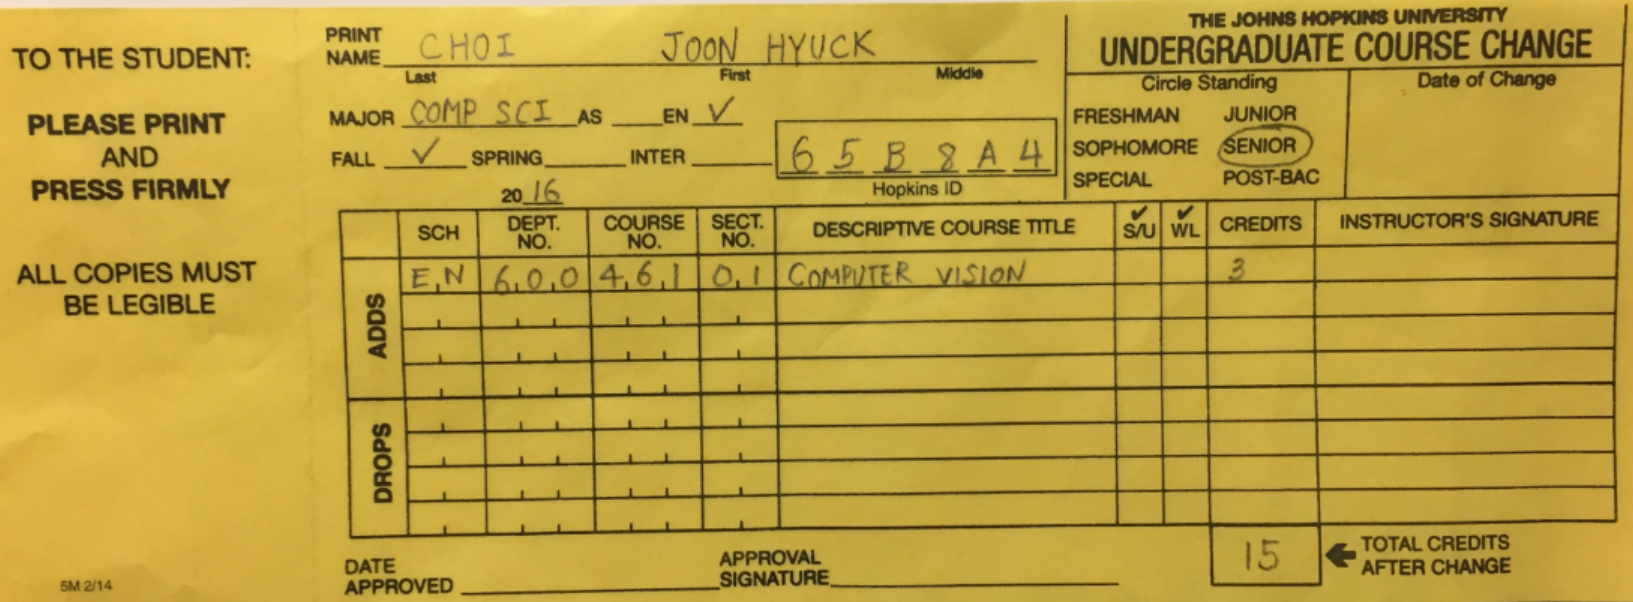 TO THE STUDENT:
PLEASE PRINT
AND
PRESS FIRMLY
ALL COPIES MUST
BE LEGIBLE
5M 2/14
PRINT
NAME CHOI JOON HYUCK
Last First Middle
MAJOR COMP SCI AS EN ✓
FALL ✓ SPRING INTER
2016
65B8A4
Hopkins ID
THE JOHNS HOPKINS UNIVERSITY
UNDERGRADUATE COURSE CHANGE
Circle Standing
FRESHMAN JUNIOR
SOPHOMORE SENIOR
SPECIAL POST-BAC
Date of Change
SCH DEPT. NO. COURSE NO. SECT. NO. DESCRIPTIVE COURSE TITLE ✓ S/U ✓ WL CREDITS INSTRUCTOR'S SIGNATURE
ADDS
EN 600 461 01 COMPUTER VISION 3
DROPS
DATE
APPROVED
APPROVAL
SIGNATURE
15
TOTAL CREDITS
AFTER CHANGE